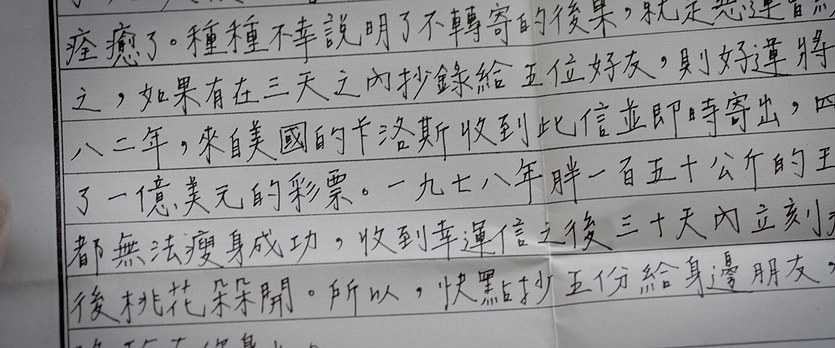 痊癒了。種種不幸說明了不轉寄的後果,就是惡運
之,如果有在三天之內抄錄給五位好友,則好運將
八二年,來自美國的卡洛斯收到此信並即時寄出,四
了一億美元的彩票。一九七八年胖一百五十公斤的王
都無法瘦身成功,收到幸運信之後三十天內立刻
後桃花朵朵開。所以,快點抄五份給身邊朋友,